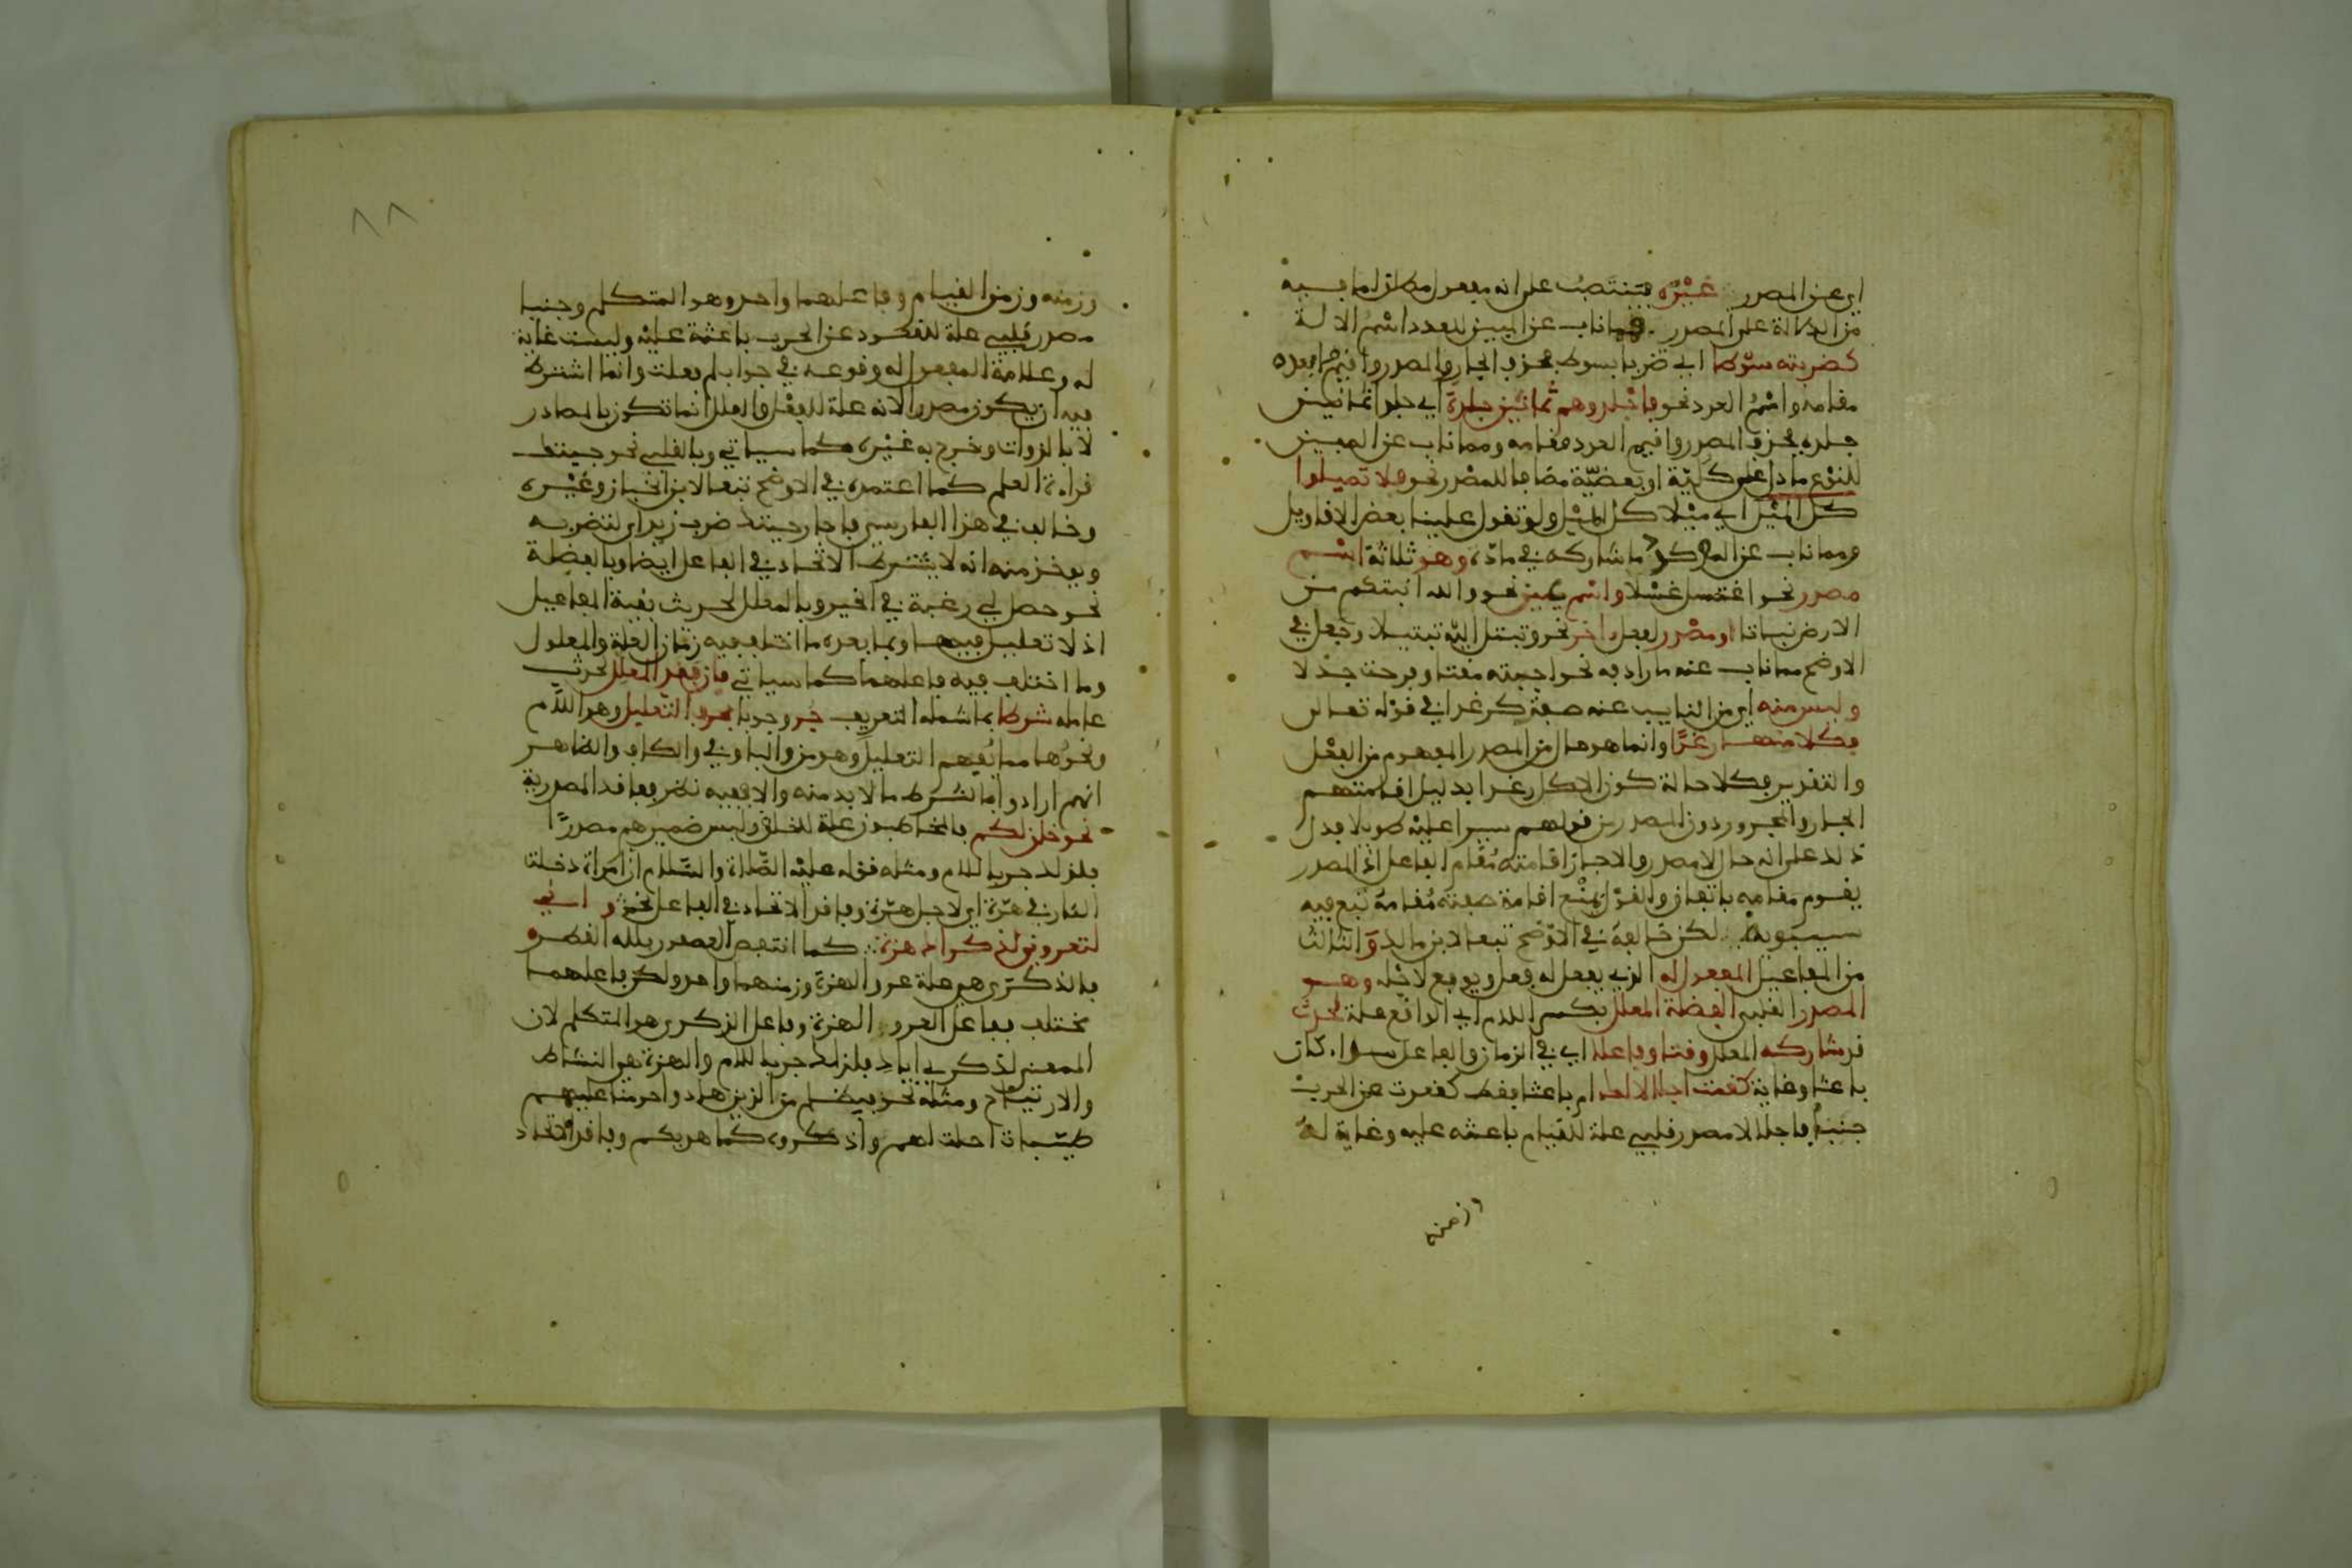 اي عن المصدر غيره فينتصب على انه مفعول مطلق لما فيه
من الدلالة على المصدر فمما ناب عن المبين للعدد اسم الالة
كضربته سوطا اي ضربا بسوط فحذف الجار والمصدر واقيم ما بعده
مقامه واسم العدد نحو فاجلدوهم ثمانين جلدة اي جلدا ثمانين
جلده فحذف المصدر واقيم العدد مقامه ومما ناب عن المبين
للنوع ما دل على كلية او بعضية مضافا للمصدر نحو فلا تميلوا
كل الميل اي ميلا كل الميل ولو تقول علينا بعض الاقاويل
ومما ناب عن المؤكد ما شاركه في مادته وهو ثلاثة اسم
مصدر نحو اغتسل غسلا واسم عين نحو والله انبتكم من
الارض نباتا او مصدر لفعل اخر نحو وتبتل اليه تبتيلا وجعل في
الاوضح مما ناب عنه مرادفه نحو احببته مقة وفرحت جذلا
وليس منه اي من النايب عنه صفته كرغدا في قوله تعالى
فكلا منها رغدا وانما هو حال من المصدر المفهوم من الفعل
والتقدير فكلا حالة كون الاكل رغدا بدليل اقامتهم
الجار والمجرور دون المصدر من قولهم سير عليه طويلا فدل
ذلك على انه حال لا مصدر والا جاز اقامته مقام الفاعل اذ المصدر
يقوم مقامه باتفاق والقول بمنع اقامة صفته مقامه تبع فيه
سيبويه لكن خالفه في الاوضح تبعا لابن مالك والثالث
من المفاعيل المفعول له الذي يفعل له فعل ويوقع لاجله وهو
المصدر القلبي الفضلة المعلل بكسر اللام اي الواقع علة لحدث
قد شاركه المعلل وقتا وفاعلا اي في الزمان والفاعل سواء كان
باعثا وغاية كقمت اجلالا لك ام باعثا فقط كقعدت عن الحرب
جبنا فاجلالا مصدر قلبي علة للقيام باعثه عليه وغاية له
وزمنه
٨٨
وزمنه وزمن القيام وفاعلهما واحد وهو المتكلم وجنبا
مصدر قلبي علة للقعود عن الحرب باعثة عليه وليست غاية
له وعلامة المفعول له وقوعه في جواب لم فعلت وانما اشترط
فيه ان يكون مصدرا لانه علة للفعل والعلل انما تكون بالمصادر
لا بالذوات وخرج به غيره كما سياتي وبالقلبي نحو جيتك
قراءة العلم كما اعتمده في الاوضح تبعا لابن الخباز وغيره
وخالف في هذا الفارسي فاجاز جيتك ضرب زيد اي لتضربه
ويوخذ منه انه لا يشترط الاتحاد في الفاعل ايضا وبالفضلة
نحو حصل لي رغبة في الخير وبالمعلل لحدث بقية المفاعيل
اذ لا تعليل فيها وبما بعده ما اختلف فيه زمان العلة والمعلول
وما اختلف فيه فاعلهما كما سياتي فان فقد المعلل لحدث
عامله شرطا مما شمله التعريف جر وجوبا بحرف التعليل وهو اللام
ونحوها مما يفهم التعليل وهو من والباء وفي والكاف والظاهر
انهم ارادوا بالشرط ما لا بد منه والا ففيه نظر ففاقد المصدرية
نحو خلق لكم فالمخاطبون علة للخلق وليس ضميرهم مصدرا
فلذلك جر باللام ومثله قوله عليه الصلاة والسلام ان امراة دخلت
النار في هرة اي لاجل هرة وفاقد الاتحاد في الفاعل نحو واني
لتعروني لذكراك هزة كما انتفض العصفور بلله القطر
فالذكرى هي علة عرو الهزة وزمنهما واحد ولكن فاعلهما
مختلف ففاعل العرو الهزة وفاعل الذكرى هو المتكلم لان
المعنى لذكري اياك فلذلك جر باللام والهزة هي النشاط
والارتياح ومثله نحو فبظلم من الذين هادوا حرمنا عليهم
طيبات احلت لهم واذكروه كما هديكم وفاقد الاتحاد